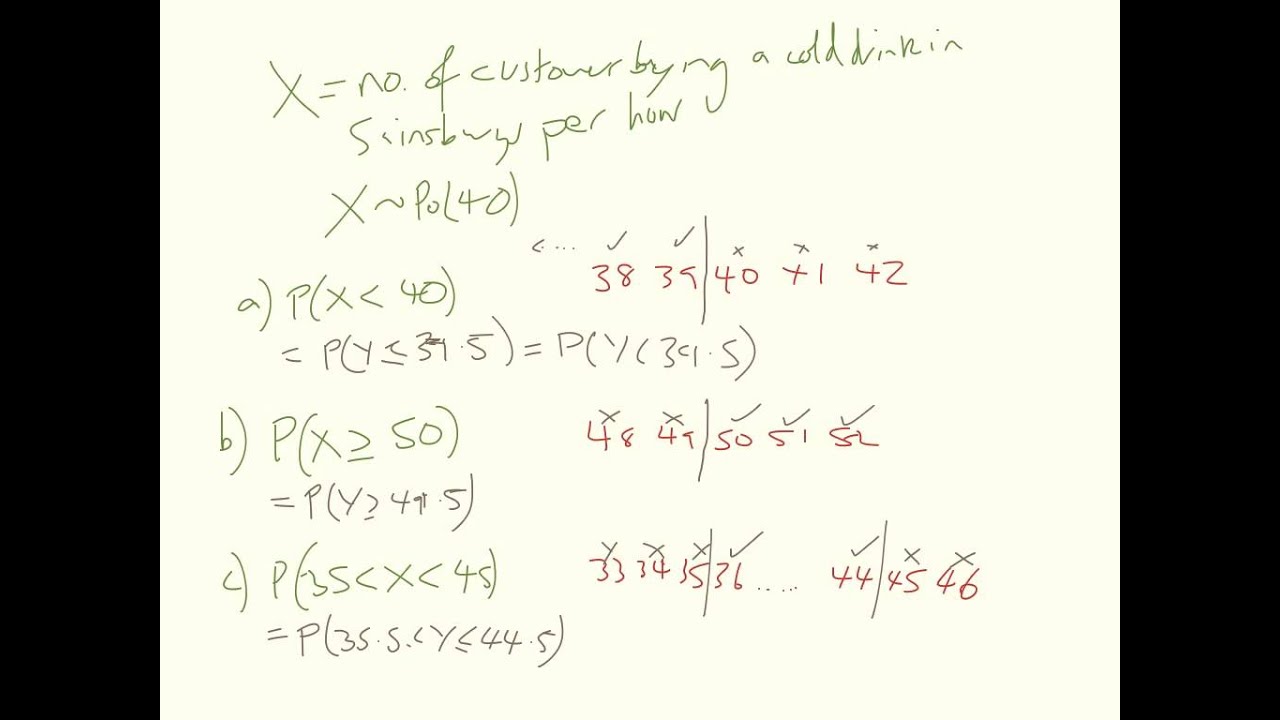 X = no. of customer buying a cold drink in
Sainsburys per hour
X ~ Po(40)
<... ✓ ✓ x x x
38 39 | 40 41 42
a) P(X < 40)
= P(Y ≤ 39.5) = P(Y < 39.5)
x x ✓ ✓ ✓
b) P(X ≥ 50) 48 49 | 50 51 52
= P(Y ≥ 49.5)
x x x ✓ ✓ x x
c) P(35 < X < 45) 33 34 35 | 36 ..... 44 | 45 46
= P(35.5 < Y ≤ 44.5)